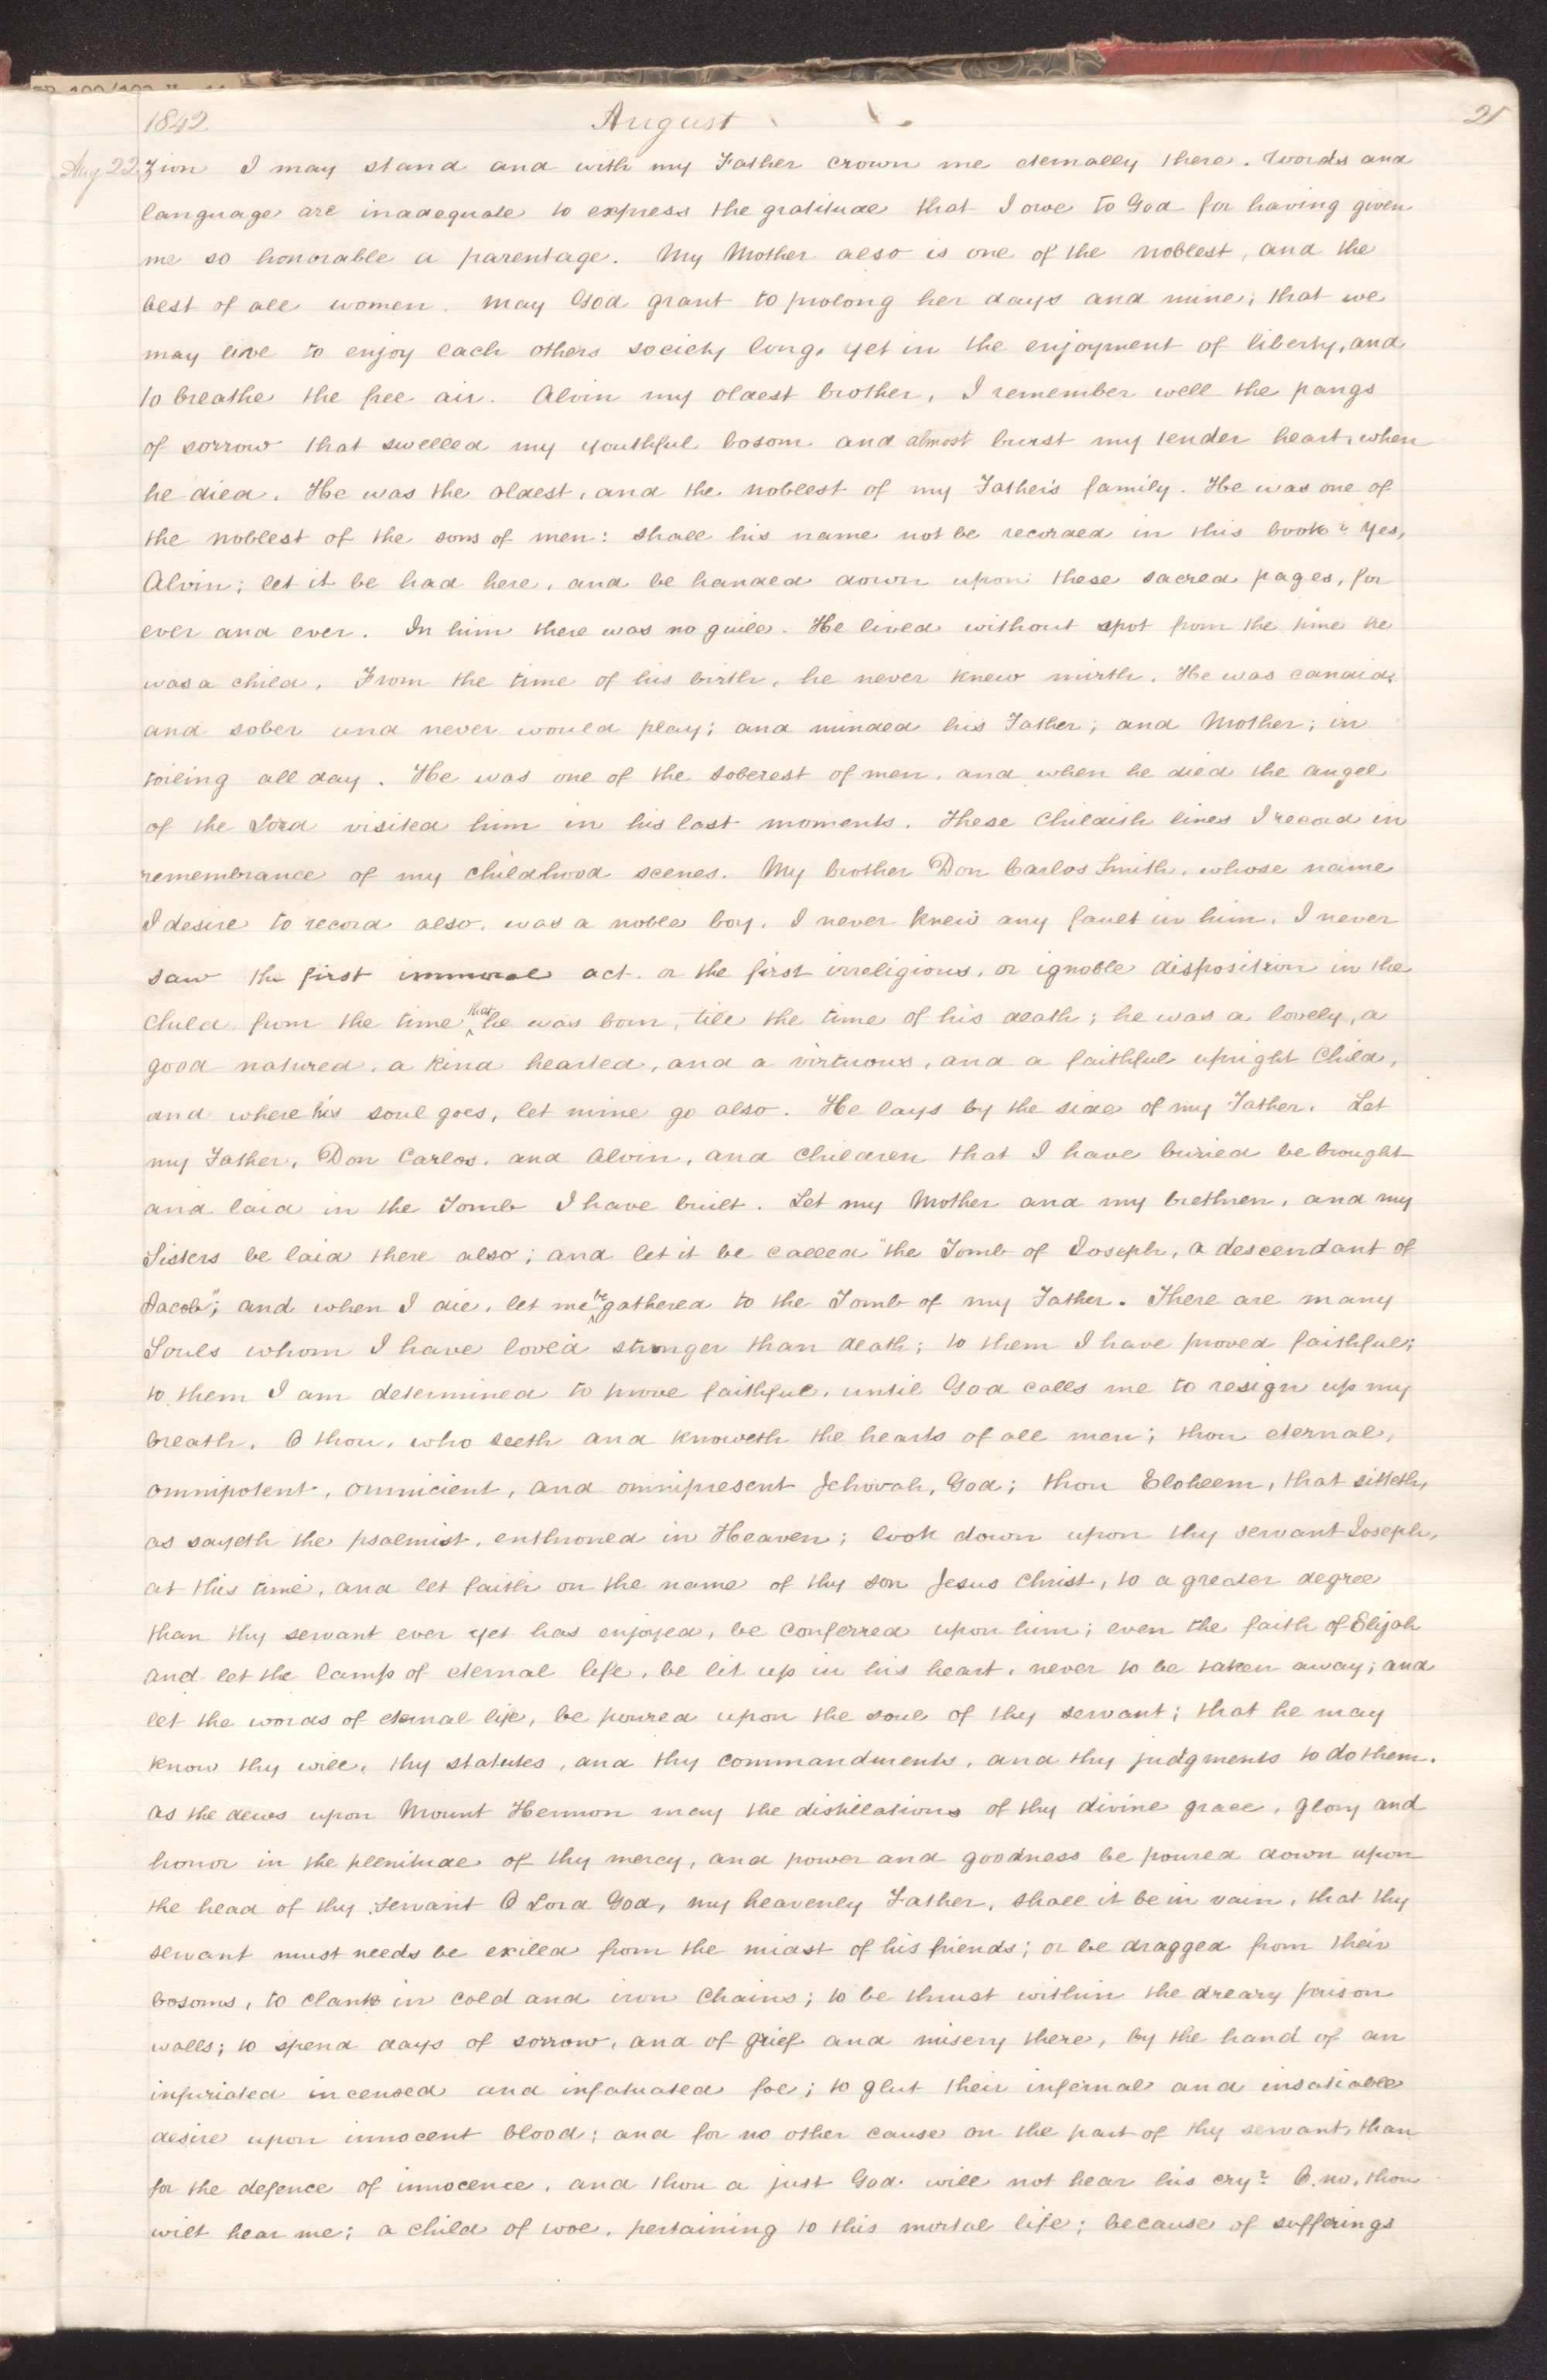 1842. August 21
Aug 22. Zion I may stand and with my Father crown me eternally there. Words and
language are inadequate to express the gratitude that I owe to God for having given
me so honorable a parentage. My Mother also is one of the noblest, and the
best of all women. May God grant to prolong her days and mine; that we
may live to enjoy each others society long, yet in the enjoyment of liberty, and
to breathe the free air. Alvin my oldest brother, I remember well the pangs
of sorrow that swelled my youthful bosom and almost burst my tender heart, when
he died. He was the oldest, and the noblest of my Father's family. He was one of
the noblest of the sons of men: shall his name not be recorded in this book? Yes,
Alvin; let it be had here, and be handed down upon these sacred pages, for
ever and ever. In him there was no guile. He lived without spot from the time he
was a child. From the time of his birth, he never knew mirth. He was candid,
and sober and never would play; and minded his Father; and Mother; in
toiling all day. He was one of the soberest of men, and when he died the angel
of the Lord visited him in his last moments. These Childish lines I record in
remembrance of my childhood scenes. My brother Don Carlos Smith, whose name
I desire to record also, was a noble boy. I never knew any fault in him. I never
saw the first immoral act, or the first irreligious, or ignoble disposition in the
Child from the time that he was born, till the time of his death; he was a lovely, a
good natured, a kind hearted, and a virtuous, and a faithful upright Child,
and where his soul goes, let mine go also. He lays by the side of my Father. Let
my Father, Don Carlos, and Alvin, and Children that I have buried be brought
and laid in the Tomb I have built. Let my Mother and my brethren, and my
Sisters be laid there also; and let it be called "the Tomb of Joseph, a descendant of
Jacob"; and when I die, let me be gathered to the Tomb of my Father. There are many
Souls whom I have loved stronger than death; to them I have proved faithful;
to them I am determined to prove faithful, until God calls me to resign up my
breath. O thou, who seeth and knoweth the hearts of all men; thou eternal,
omnipotent, omnicient, and omnipresent Jehovah, God; thou Eloheem, that sitteth,
as sayeth the psalmist, enthroned in Heaven; look down upon thy servant Joseph,
at this time, and let faith on the name of thy son Jesus Christ, to a greater degree
than thy servant ever yet has enjoyed, be conferred upon him; even the faith of Elijah
and let the lamp of eternal life, be lit up in his heart, never to be taken away; and
let the words of eternal life, be poured upon the soul of thy servant; that he may
know thy will, thy statutes, and thy commandments, and thy judgments to do them.
as the dews upon Mount Hermon may the distillations of thy divine grace, glory and
honor in the plenitude of thy mercy, and power and goodness be poured down upon
the head of thy servant O Lord God, my heavenly Father, shall it be in vain, that thy
servant must needs be exiled from the midst of his friends; or be dragged from their
bosoms, to clank in cold and iron Chains; to be thrust within the dreary prison
walls; to spend days of sorrow, and of grief and misery there, by the hand of an
infuriated incensed and infatuated foe; to glut their infernal and insatiable
desire upon innocent blood; and for no other cause on the part of thy servant, than
for the defence of innocence, and thou a just God will not hear his cry? O, no, thou
wilt hear me; a child of woe, pertaining to this mortal life; because of sufferings